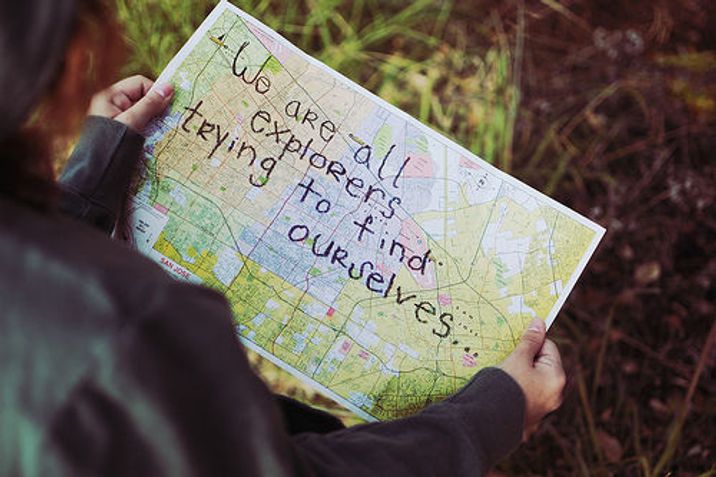 We are all
explorers
trying to find
ourselves...
SAN JOSE